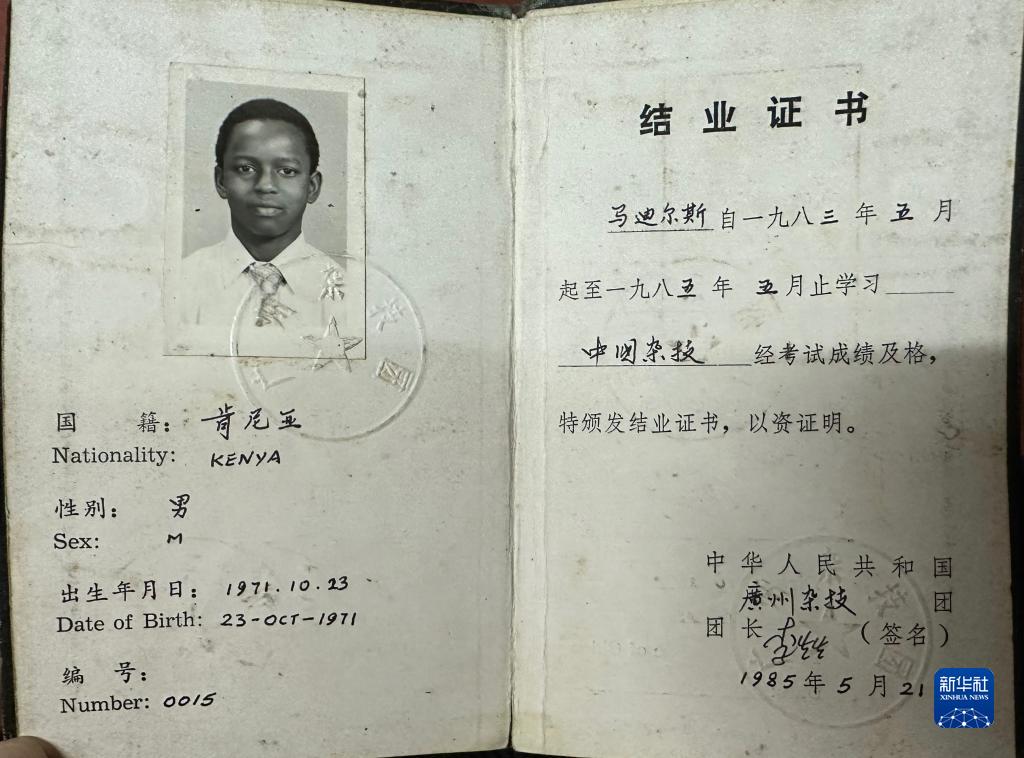 国 籍：肯尼亚
Nationality: KENYA
性别： 男
Sex: M
出生年月日：1971.10.23
Date of Birth: 23-OCT-1971
编 号：
Number: 0015
结业证书
马迪尔斯自一九八三年五月
起至一九八五年五月止学习
中国杂技经考试成绩及格，
特颁发结业证书，以资证明。
中华人民共和国
廣州杂技团
团长（签名）
1985年5月21
新华社
XINHUA NEWS